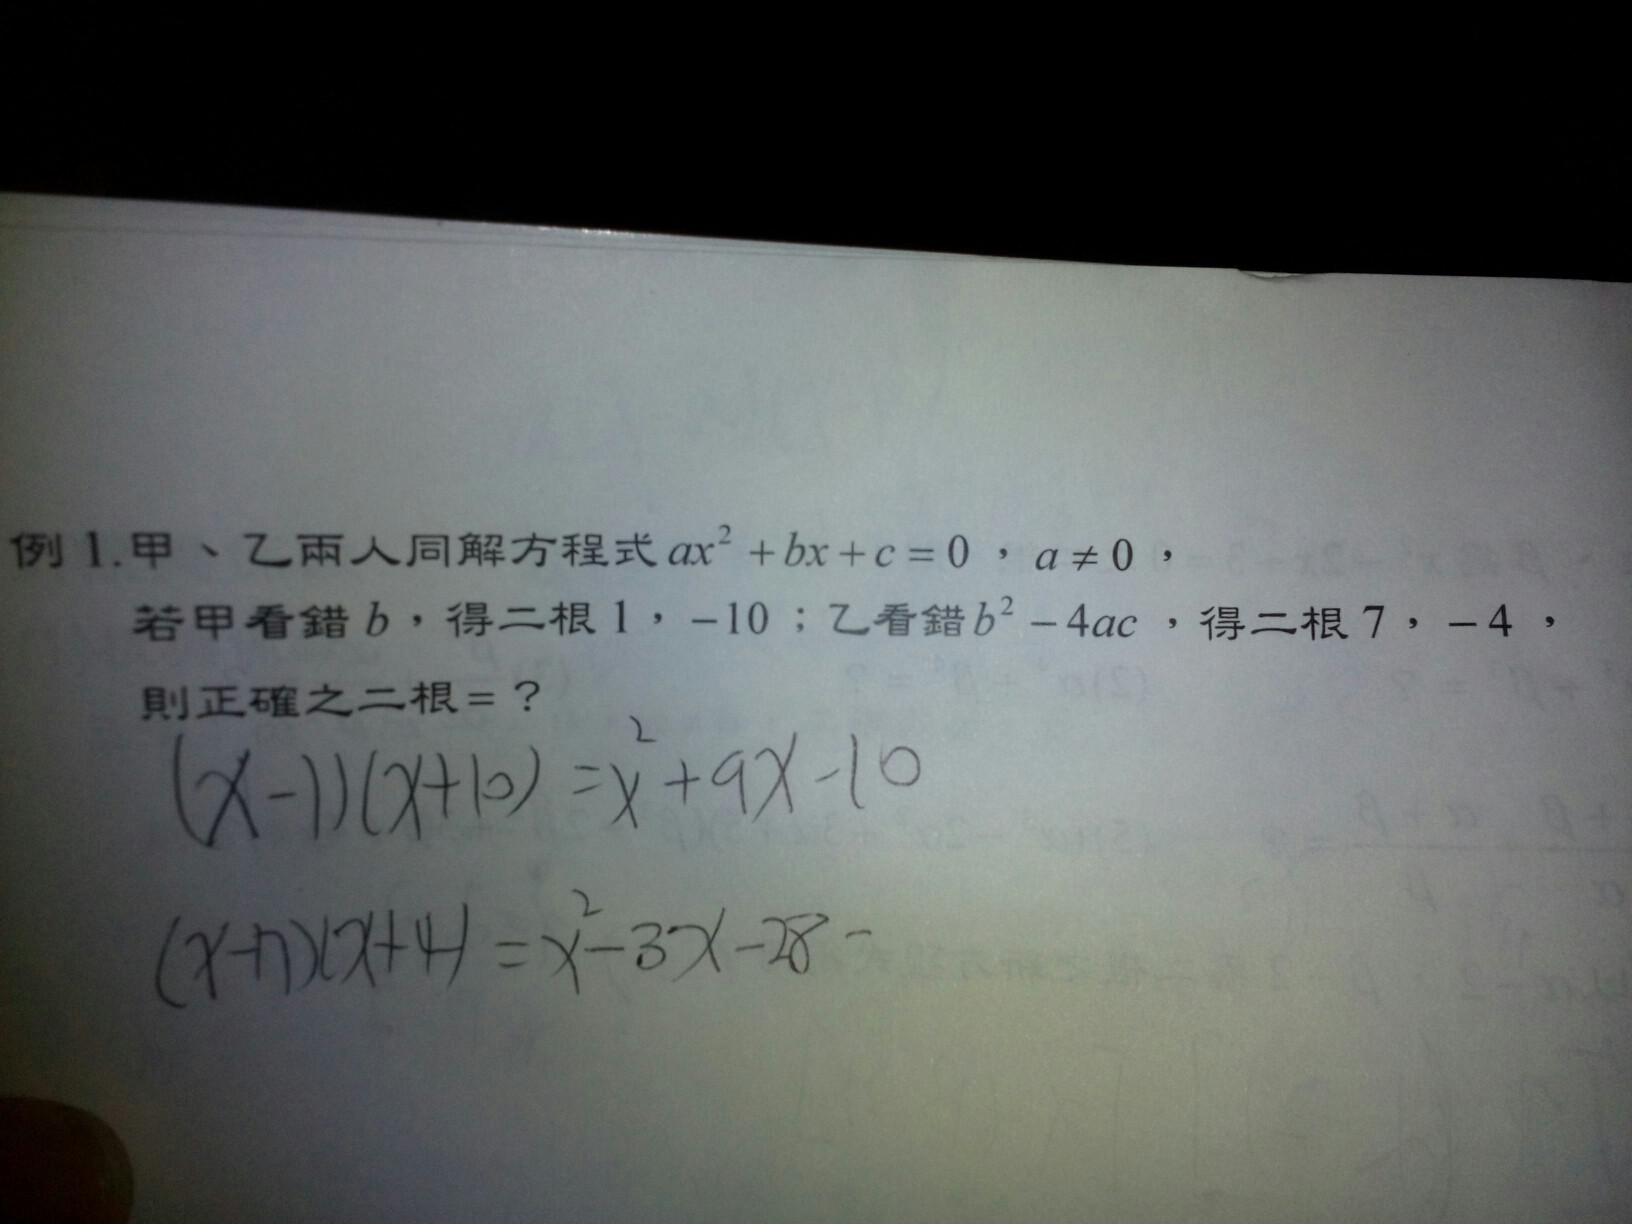 例 1.甲、乙兩人同解方程式 ax² + bx + c = 0，a ≠ 0，
若甲看錯 b，得二根 1，−10；乙看錯 b² − 4ac，得二根 7，−4，
則正確之二根 = ？
(x-1)(x+10) = x² + 9x - 10
(x-7)(x+4) = x² - 3x - 28 -